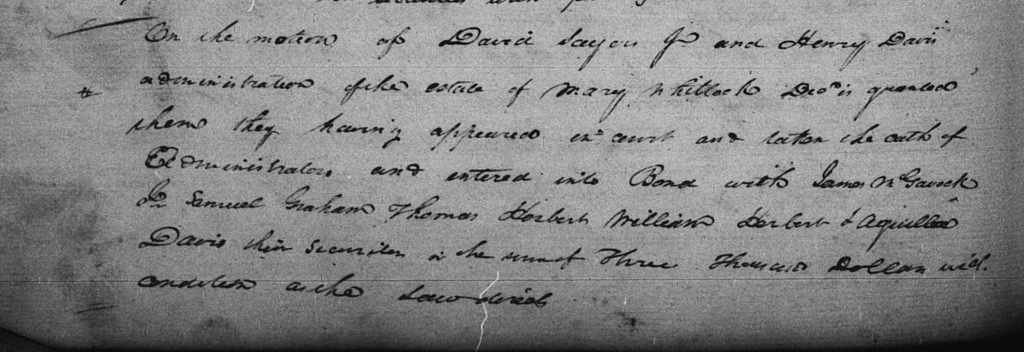 On the motion of David Sayers Jr and Henry Davis
administration of the estate of Mary Whitlock Decd is granted
them they having appeared in court and taken the oath of
Administrators and entered into Bond with James McGavock
Jr Samuel Graham Thomas Herbert William Herbert & Aquilla
Davis their securities in the sum of Three Thousand Dollars with
condition as the Law directs